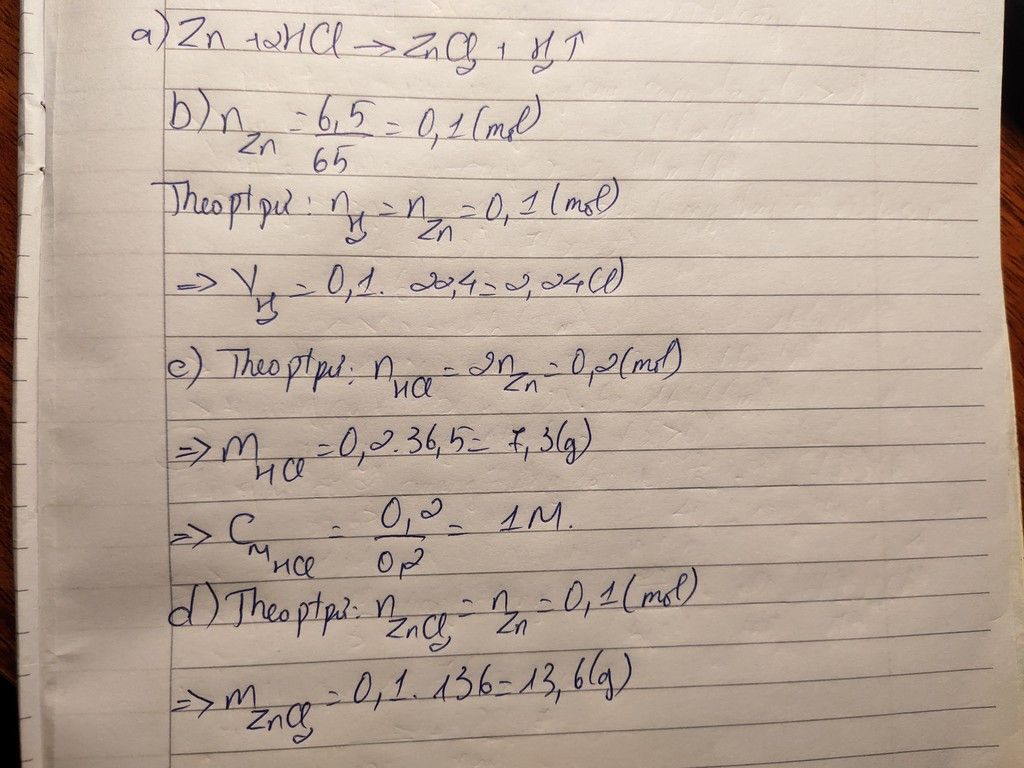 a) Zn + 2HCl → ZnCl₂ + H₂ ↑
b) n_Zn = 6,5/65 = 0,1 (mol)
Theo ptpư: n_H₂ = n_Zn = 0,1 (mol)
=> V_H₂ = 0,1 . 22,4 = 2,24 (l)
c) Theo ptpư: n_HCl = 2n_Zn = 0,2 (mol)
=> m_HCl = 0,2 . 36,5 = 7,3 (g)
=> C_M_HCl = 0,2/0,2 = 1M.
d) Theo ptpư: n_ZnCl₂ = n_Zn = 0,1 (mol)
=> m_ZnCl₂ = 0,1 . 136 = 13,6 (g)